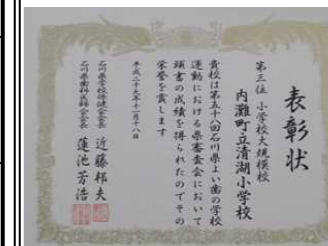 表彰状
第三位 小学校大規模校
内灘町立清湖小学校
貴校は第五十八回石川県よい歯の学校
運動における県審査会において
頭書の成績を得られたのでその
栄誉を賞します
平成二十九年十一月十八日
石川県学校保健会会長 近藤邦夫
石川県歯科医師会会長 蓮池芳浩